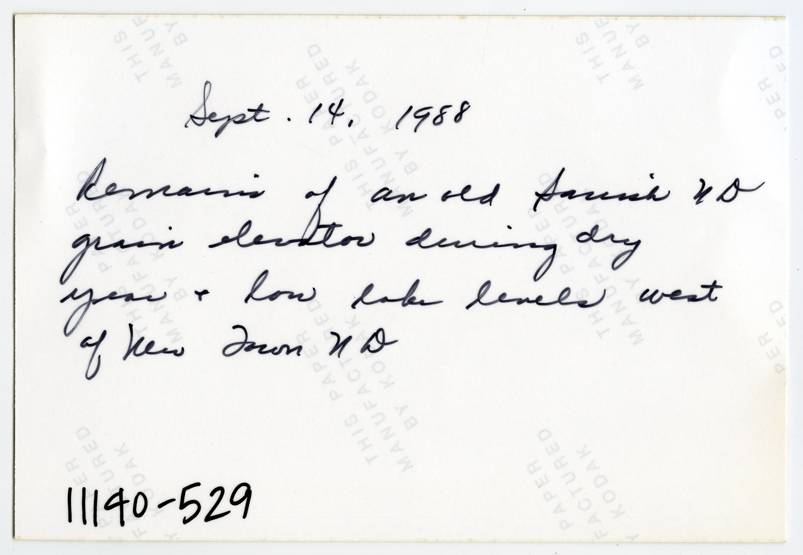 Sept. 14, 1988
Remains of an old Sanish ND
grain elevator during dry
year + low lake levels west
of New Town ND
11140-529
THIS PAPER
MANUFACTURED
BY KODAK